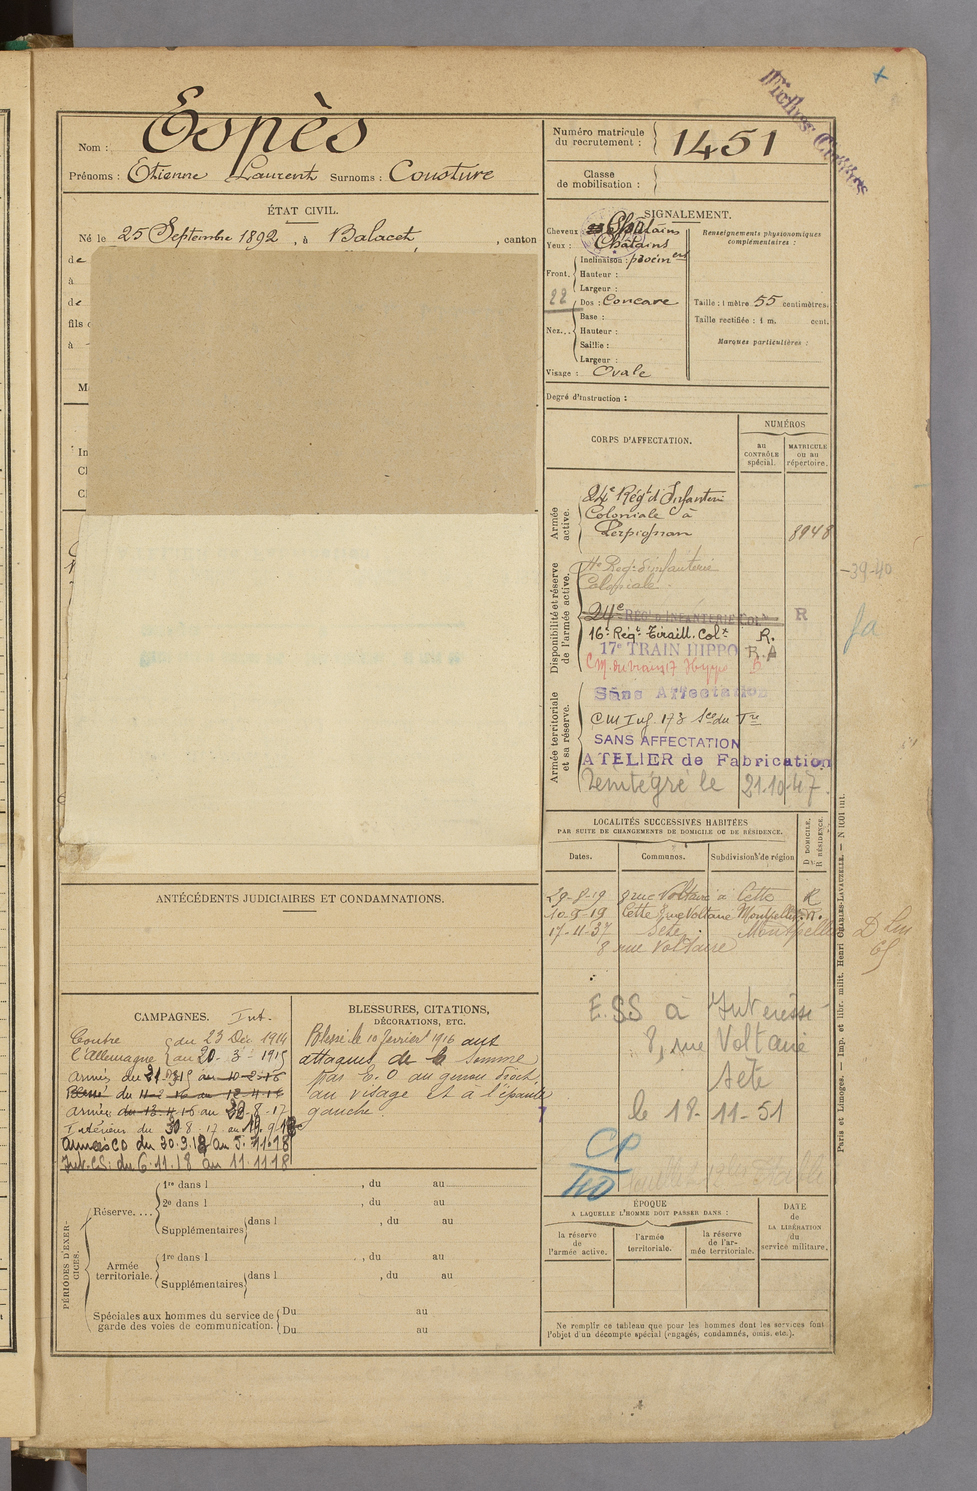 Nom : Espès
Prénoms : Etienne Laurent Surnoms : Cousture
ÉTAT CIVIL.
Né le 25 Septembre 1892, à Balacet, canton
de
à
de
fils
à
ANTÉCÉDENTS JUDICIAIRES ET CONDAMNATIONS.
CAMPAGNES. Int.
Contre du 23 Déc 1914
l'Allemagne au 20 3 1915
armés du 21 3 15 au 10-2-16
Blessé du 11-2-16 au 12-4-16
armée du 13.4.16 au 29-8-17
Intérieur du 30 8.17 au
armées CD du 30.3.18 au 5.11.18
Int. CS. du 6.11.18 au 11.11 18
BLESSURES, CITATIONS,
DÉCORATIONS, ETC.
Blessé le 10 février 1916 aux
attaques de la Somme
par E. O au genou droit,
au visage et à l'épaule
gauche.
PÉRIODES D'EXERCICES.
Réserve....
1re dans l , du au
2e dans l , du au
Supplémentaires dans l , du au
Armée territoriale.
1re dans l , du au
Supplémentaires dans l , du au
Spéciales aux hommes du service de garde des voies de communication.
Du au
Du au
Fiches
Numéro matricule du recrutement : 1451
Classe de mobilisation :
SIGNALEMENT.
Cheveux : Châtains
Yeux : Châtains
Front.
Inclinaison : proémen
Hauteur :
Largeur :
22
Nez...
Dos : Concave
Base :
Hauteur :
Saillie :
Largeur :
Visage : Ovale
Renseignements physionomiques complémentaires :
Taille : 1 mètre 55 centimètres.
Taille rectifiée : 1 m. cent.
Marques particulières :
Degré d'instruction :
CORPS D'AFFECTATION.
NUMÉROS
AU CONTRÔLE spécial.
MATRICULE OU AU répertoire.
Armée active.
24e Régt d'Infanterie
Coloniale à
Perpignan
8948
Disponibilité et réserve de l'armée active.
Regt d'infanterie
Coloniale
24e REGt D'INFANTERIE COLle R
16e Régt Tiraill. Colx R.
17e TRAIN HIPPO R.A
Armée territoriale et sa réserve.
Sans Affectation
CM Inf. 178 Son du Trn
SANS AFFECTATION
ATELIER de Fabrication
Réintégré le 21.10.47.
-39-40
LOCALITÉS SUCCESSIVES HABITÉES
PAR SUITE DE CHANGEMENTS DE DOMICILE OU DE RÉSIDENCE.
Dates.
Communes.
Subdivisions de région
D DOMICILE,
R RÉSIDENCE.
29-8-19 8 rue Voltaire à Cette R
10-9-19 Cette 8 rue Voltaire Montpellier
17-11-37 Sète Montpellier
8 rue Voltaire
E.SS à Intéressé
8, rue Voltaire
Sète
le 18-11-51
CP
40
ÉPOQUE
A LAQUELLE L'HOMME DOIT PASSER DANS :
la réserve de l'armée active.
l'armée territoriale.
la réserve de l'armée territoriale.
DATE de LA LIBÉRATION du service militaire.
Ne remplir ce tableau que pour les hommes dont les services font
l'objet d'un décompte spécial (engagés, condamnés, omis. etc.).
Paris et Limoges. — Imp. et libr. milit. Henri CHARLES-LAVAUZELLE.